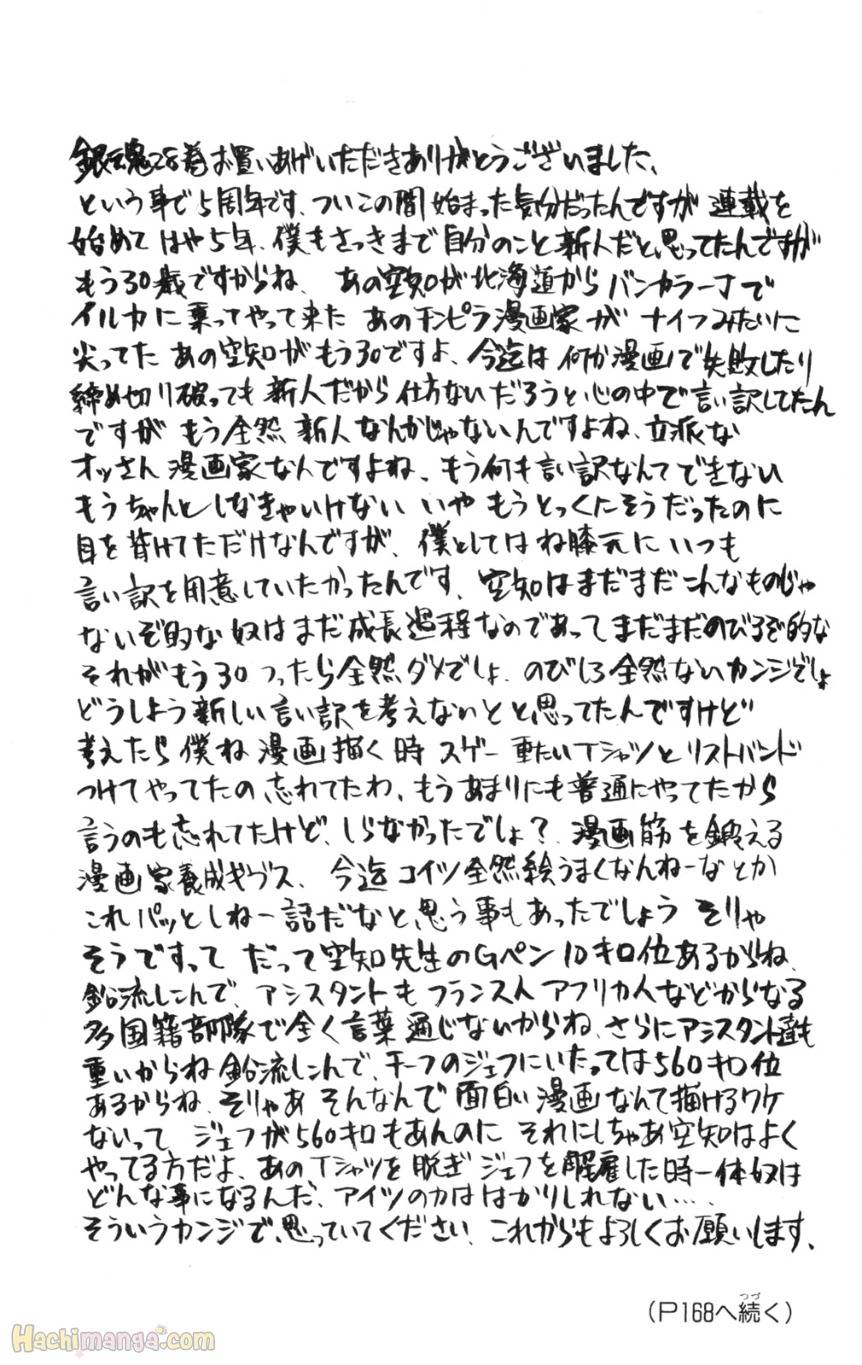 銀魂28巻お買いあげいただきありがとうございました、
という事で5周年です、ついこの間始まった気分だったんですが 連載を
始めて はや5年、僕もさっきまで自分のこと新人だと思ってたんですが
もう30歳ですからね、 あの空知が北海道から バンカラ一丁で
イルカに乗ってやって来た あのチンピラ漫画家が ナイフみたいに
尖ってた あの空知がもう30ですよ、今迄は 何か漫画で失敗したり
締め切り破っても 新人だから仕方ないだろうと心の中で言い訳してたん
ですが もう全然 新人なんかじゃないんですよね、立派な
オッさん漫画家なんですよね、もう何も言い訳なんてできない
もうちゃんとしなきゃいけない いや もうとっくにそうだったのに
目を背けてただけなんですが、僕としてはね膝元に いつも
言い訳を用意していたかったんです、空知はまだまだこんなものじゃ
ないぞ的な 奴はまだ成長過程なのであって まだまだのびるぞ的な
それがもう30 つったら全然ダメでしょ、のびしろ全然ないカンジでしょ
どうしよう新しい言い訳を考えないとと思ってたんですけど
考えたら僕ね 漫画描く時 スゲー 重たいTシャツとリストバンド
つけてやってたの忘れてたわ、もうあまりにも普通にやってたから
言うのも忘れてたけど、しらなかったでしょ?漫画筋を鍛える
漫画家養成ギプス、今迄コイツ全然絵うまくなんねーなとか
これパッとしねー話だなと思う事もあったでしょう そりゃ
そうですって だって空知先生のGペン10キロ位あるからね、
鉛流しこんで、アシスタントもフランス人アフリカ人などからなる
多国籍部隊で全く言葉通じないからね、さらにアシスタント達も
重いからね鉛流しこんで、チーフのジェフにいたっては560キロ位
あるからね、そりゃあ そんなんで 面白い漫画なんて描けるワケ
ないって ジェフが560キロもあんのに それにしちゃあ空知はよく
やってる方だよ、あのTシャツを脱ぎジェフを解雇した時一体奴は
どんな事になるんだ、アイツの力ははかりしれない…、
そういうカンジで思っていてください、これからもよろしくお願いします、
(P168へ続く)
つづ
Hachimanga.com